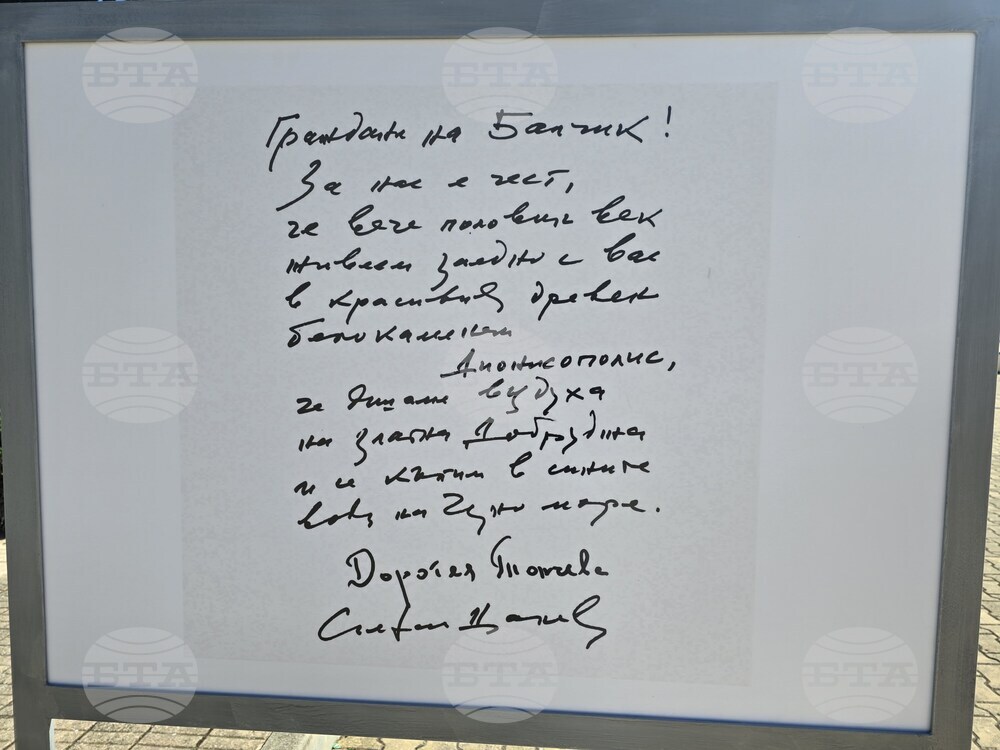 БТА БТА БТА
Граждани на Балчик!
За нас е чест,
че вече половин век
живеем заедно с вас
в красивия древен
белокаменен
Дионисополис,
че дишаме въздуха
на златна Добруджа
и се къпем в сините
води на Черно море.
БТА БТА
Доротея Тончева
Стефан Цанев
БТА БТА БТА